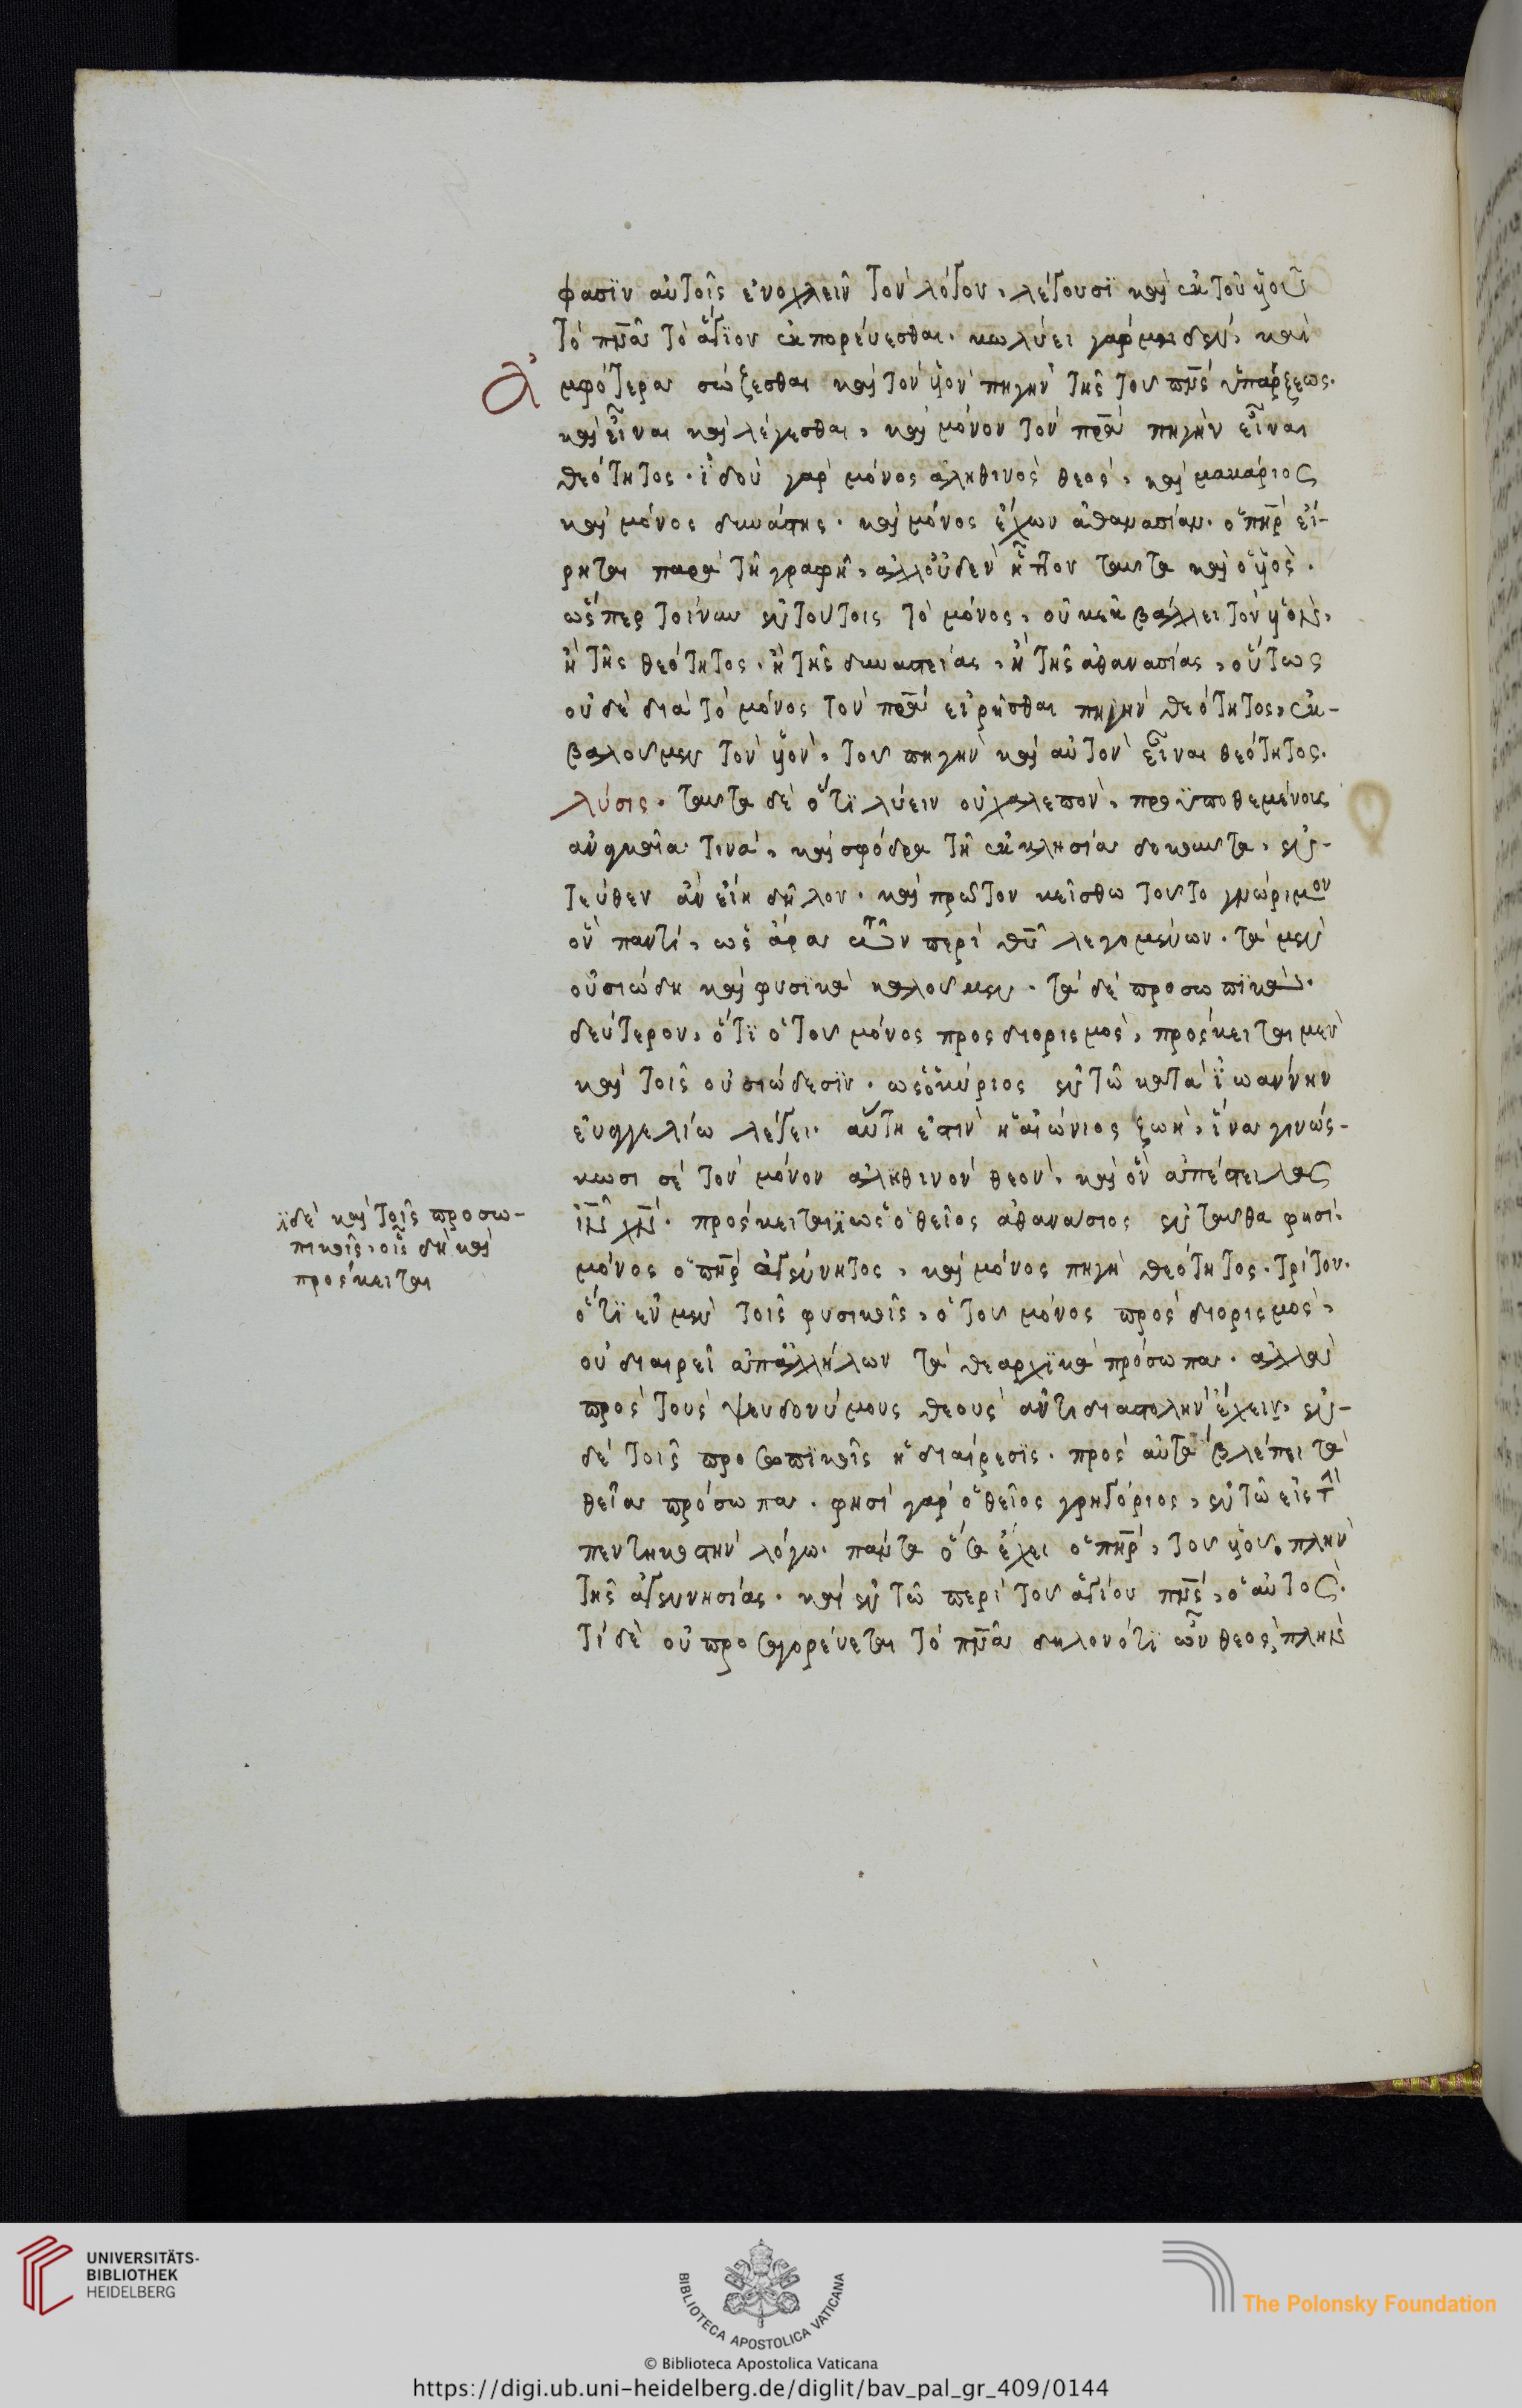 φασὶν αὐτοῖς ἐνοχλεῖν τὸν λόγον, λέγουσι καὶ ἐκ τοῦ ὑοῦ
τὸ πν̅α τὸ ἅγιον ἐκπορεύεσθαι. κωλύει γὰρ μηδὲν, καὶ
ἀμφότερα σώζεσθαι καὶ τὸν ὑὸν πηγὴν τῆς τοῦ πν̅ς ὑπάρξεως.
καὶ εἶναι καὶ λέγεσθαι, καὶ μόνον τὸν πρ̅α πηγὴν εἶναι
θεότητος. ἰδοὺ γὰρ μόνος ἀληθινὸς θεὸς, καὶ μακάριος
καὶ μόνος δυνάστης. καὶ μόνος ἔχων ἀθανασίαν. ὁ πη̅ρ εἴ-
ρηται παρὰ τῆ γραφῆ, ἀλλοὐδὲν ἧττον ταῦτα καὶ ὁ ὑὸς.
ὥσπερ τοίνυν ἐν τούτοις τὸ μόνος, οὐκ ἐκβάλλει τὸν ὑὸν,
ἢ τῆς θεότητος. ἢ τῆς δυναστείας, ἢ τῆς ἀθανασίας, οὕτως
οὐδὲ διὰ τὸ μόνος τὸν πρ̅α εἰρῆσθαι πηγὴν θεότητος, ἐκ-
βαλοῦμεν τὸν ὑὸν, τοῦ πηγὴν καὶ αὐτὸν εἶναι θεότητος.
λύσις. ταῦτα δὲ ὅτι λύειν οὐ χαλεπὸν, προϋποθεμένοις
ἀναγκαῖα τινὰ, καὶ σφόδρα τῆ ἐκκλησία δοκοῦντα, ἐν-
τεῦθεν ἂν εἴη δῆλον. καὶ πρῶτον κείσθω τοῦτο γνώριμον
ὂν παντὶ, ὡς ἄρα τῶν περὶ θῦ λεγομένων. τὰ μὲν
οὐσιώδη καὶ φυσικὰ καλοῦμεν. τὰ δὲ προσωπικά.
δεύτερον, ὅτι ὁ τοῦ μόνος προσδιορισμὸς, πρόσκειται μὲν
καὶ τοῖς οὐσιώδεσιν. ὡς ὁ κύριος ἐν τῶ κατὰ ἰωάννην
εὐαγγελίω λέγει. αὕτη ἐστὶν ἡ αἰώνιος ζωὴ, ἵνα γινώσ-
κωσι σὲ τὸν μόνον ἀληθινὸν θεὸν, καὶ ὃν ἀπέστειλας
ιν̅ χν̅. πρόσκειται ὡς ὁ θεῖος ἀθανάσιος ἐνταῦθα φησί.
μόνος ὁ πη̅ρ ἀγέννητος, καὶ μόνος πηγὴ θεότητος. τρίτον.
ὅτι ἐν μὲν τοῖς φυσικοῖς, ὁ τοῦ μόνος προσδιορισμὸς,
οὐ διαιρεῖ ἀπἀλλήλων τὰ θεαρχικὰ πρόσωπα. ἀλλὰ
πρὸς τοὺς ψευδονύμους θεοὺς ἀντιδιαστολὴν ἔχειν, ἐν-
δὲ τοῖς προσωπικοῖς ἡ διαίρεσις. πρὸς αὐτὰ βλέπει τὰ
θεῖα πρόσωπα. φησὶ γὰρ ὁ θεῖος γρηγόριος, ἐν τῶ εἰς τὴν
πεντηκοστὴν λόγω. πάντα ὅσα ἔχει ὁ πη̅ρ, τοῦ ὑοῦ, πλὴν
τῆς ἀγεννησίας. καὶ ἐν τῶ περὶ τοῦ ἁγίου πν̅ς, ὁ αὐτὸς.
τί δὲ οὐ προσαγορεύεται τὸ πν̅α δηλονότι ὧν θεὸς, πλὴν
δὲ καὶ τοῖς προσω-
πικοῖς, οἷς δὴ καὶ
πρόσκειται
UNIVERSITÄTS-
BIBLIOTHEK
HEIDELBERG
BIBLIOTECA APOSTOLICA VATICANA
The Polonsky Foundation
© Biblioteca Apostolica Vaticana
https://digi.ub.uni-heidelberg.de/diglit/bav_pal_gr_409/0144